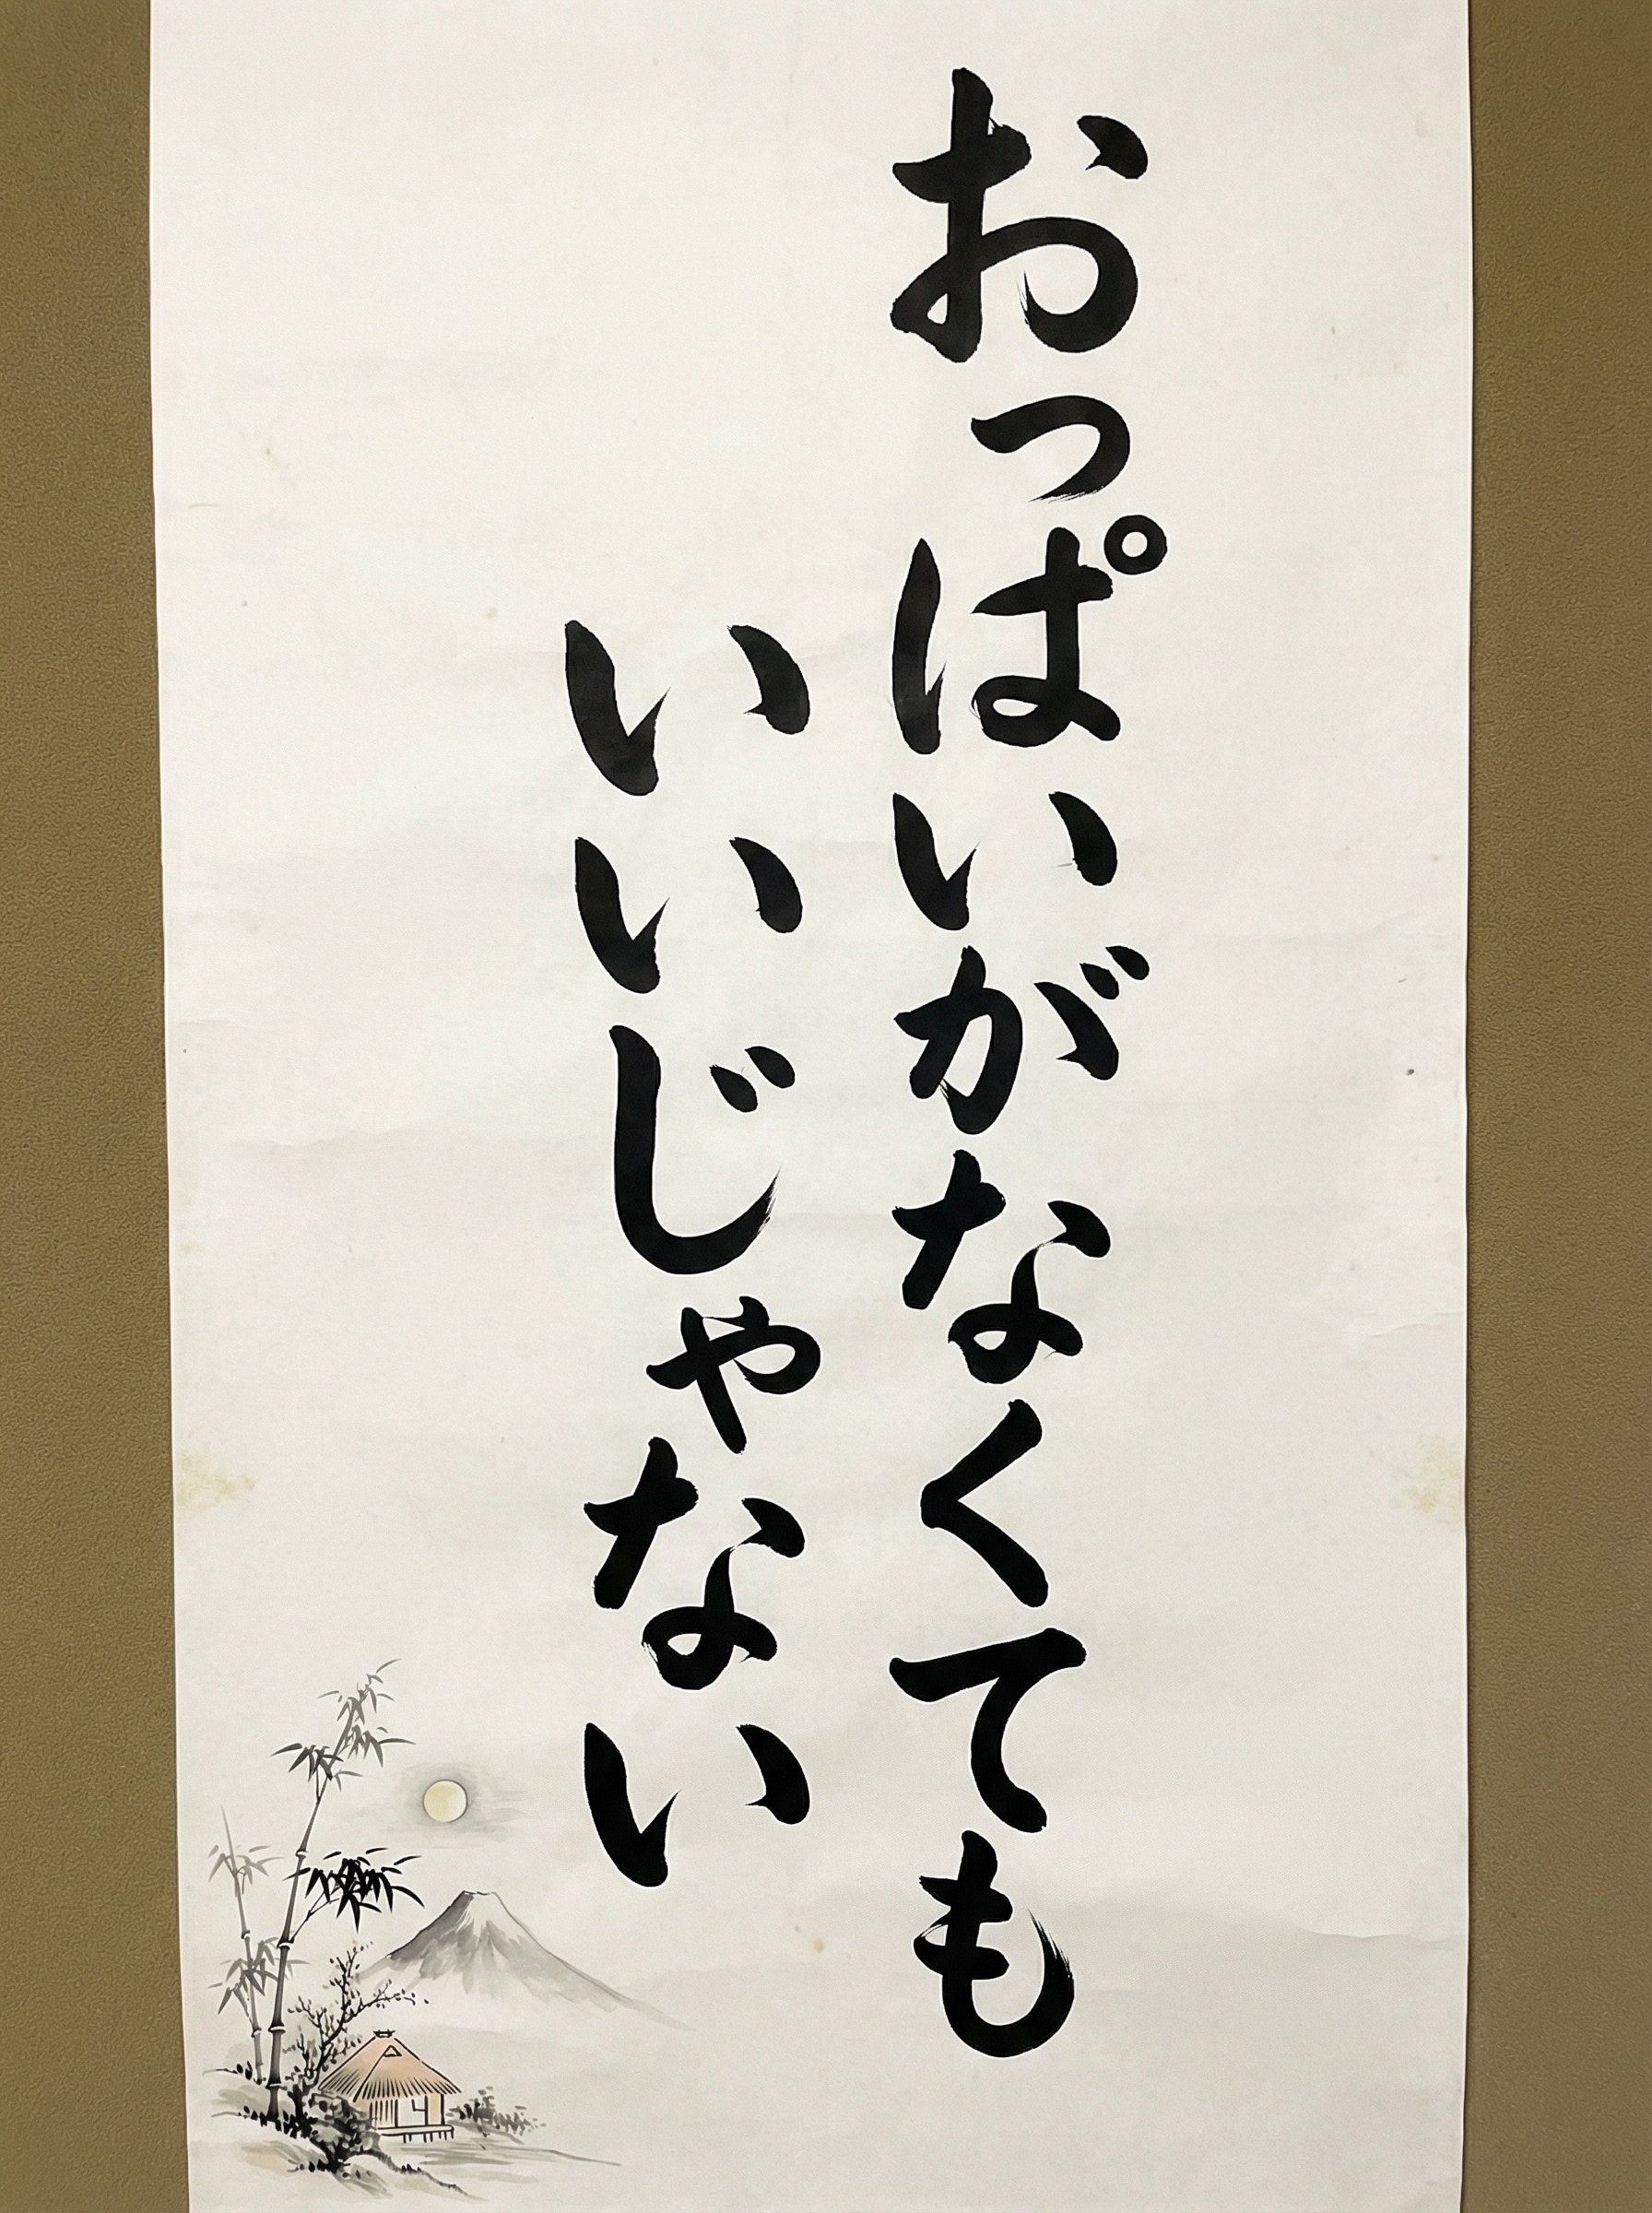 おっぱいがなくても
いいじゃない